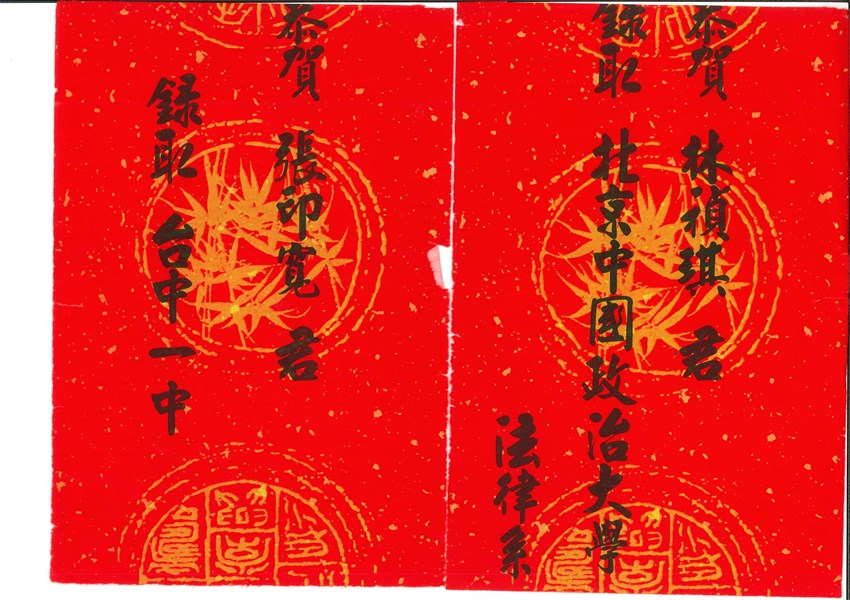 恭賀 林禎琪 君
錄取 北京中國政治大學
法律系
恭賀 張印寬 君
錄取 台中一中